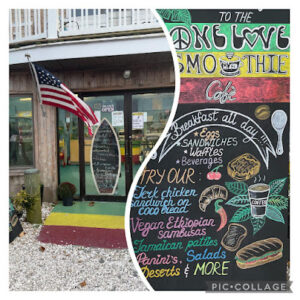 TO THE
ONE LOVE
SMOOTHIE
Cafe
Breakfast all day!!!
* Eggs
* SANDWICHES
* Waffles
* Beverages
TRY OUR:
Jerk chicken
sandwich on
COCO bread.
Vegan Ethiopian
Sambusas
Jamaican patties
Panini's, Salads
Deserts & MORE
PIC•COLLAGE